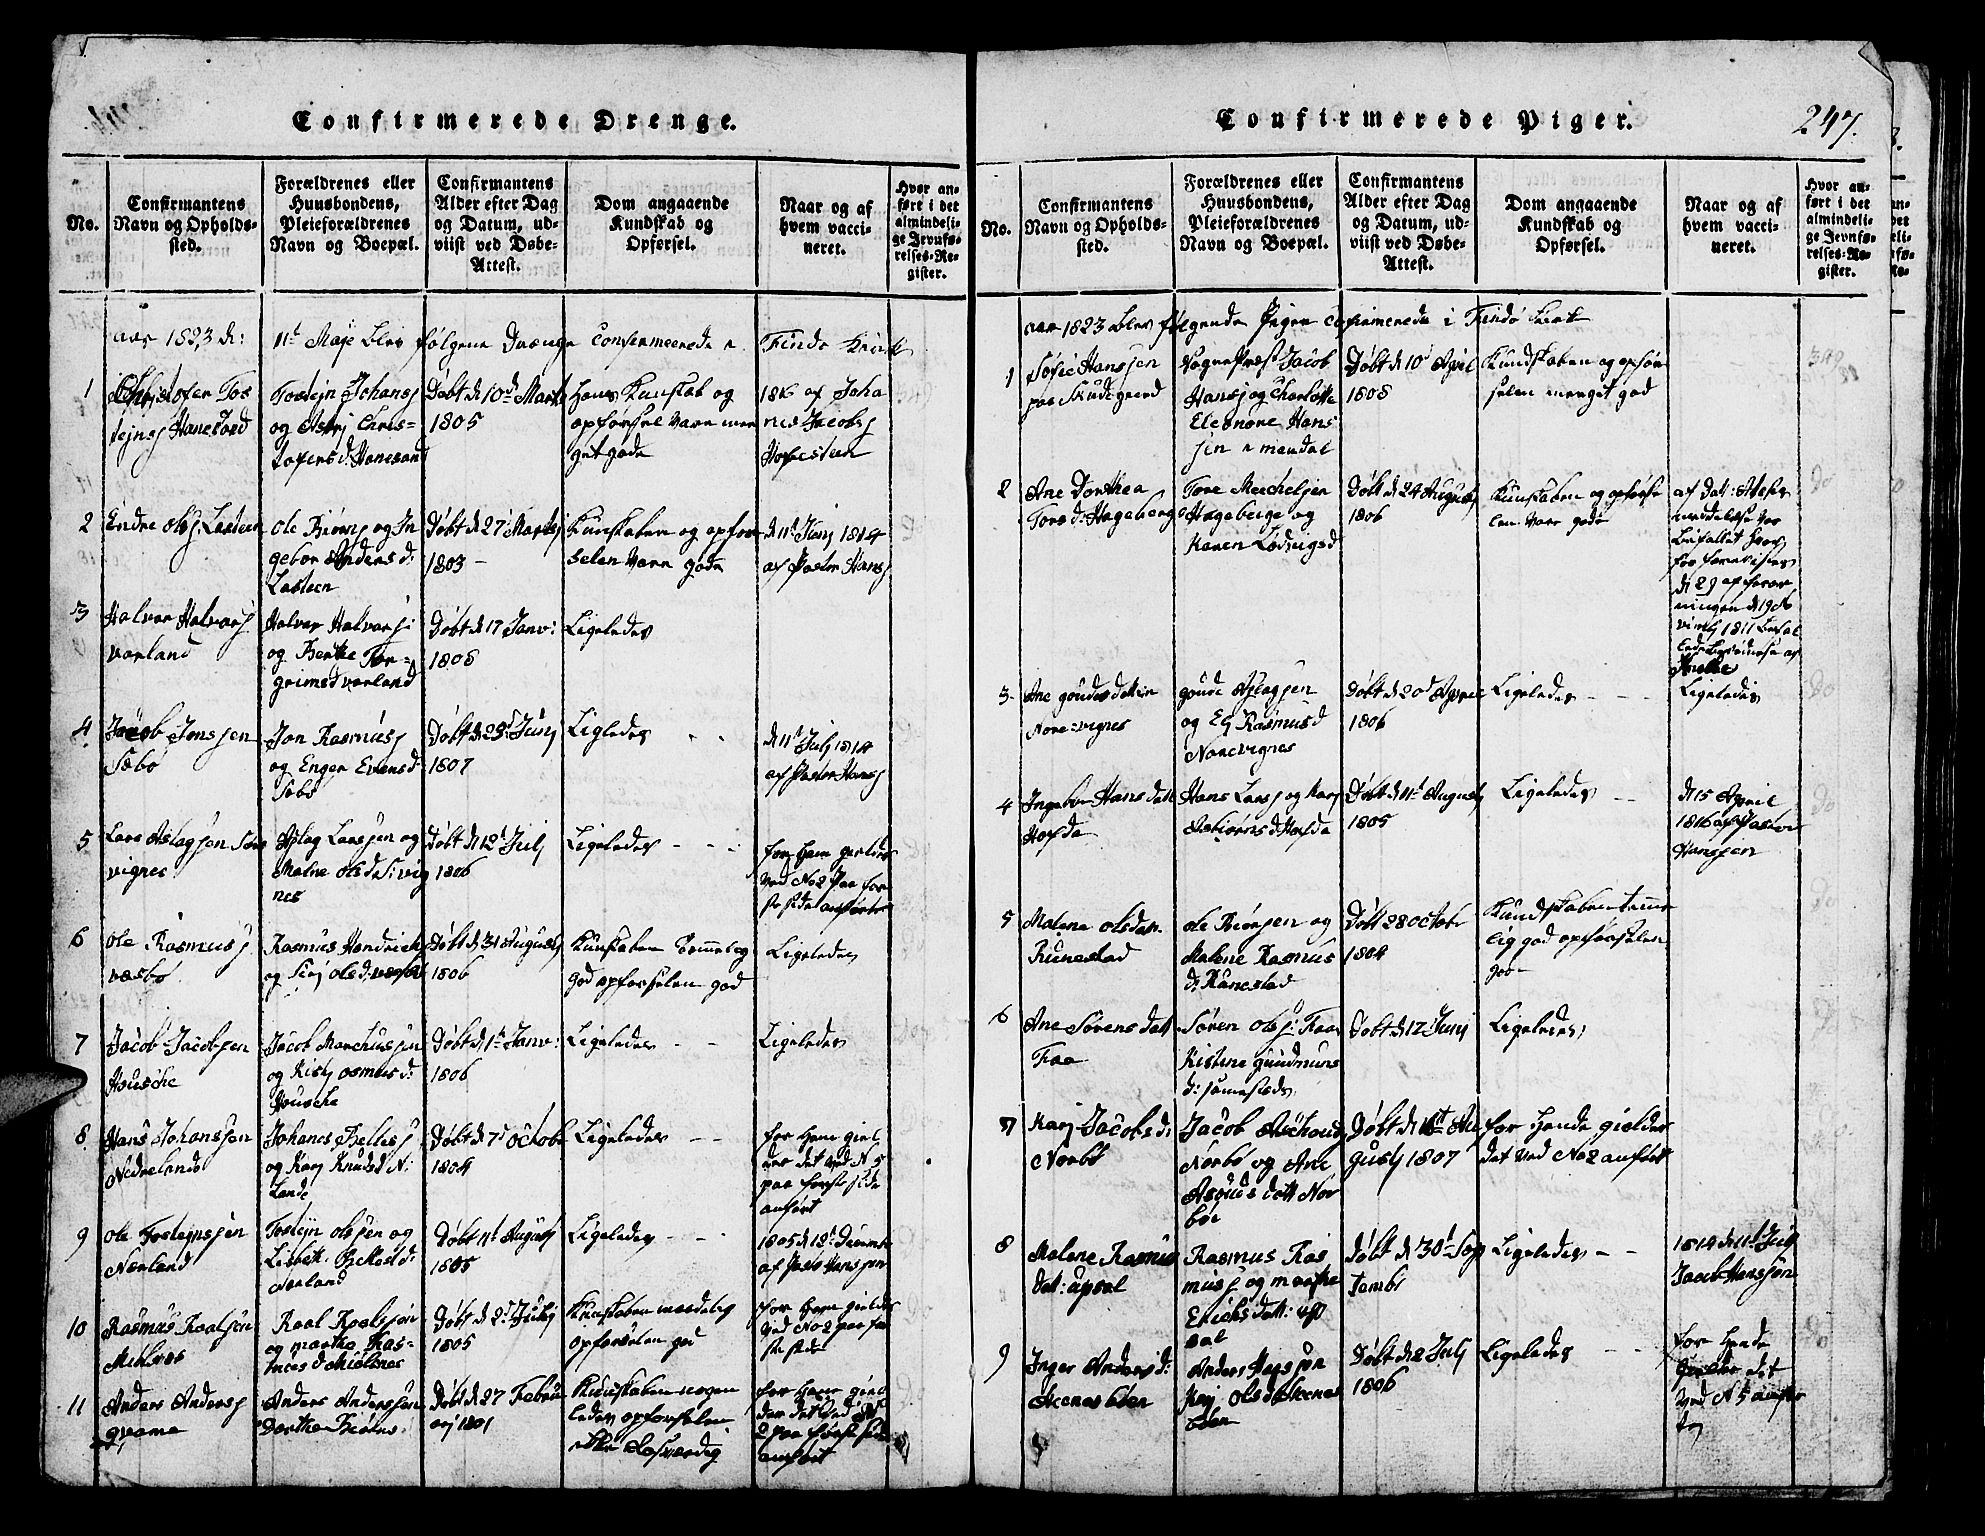 Confirmerede Drenge.
No.
Confirmantens
Navn og Opholds-
sted.
Forældrenes eller
Huusbondens,
Pleieforældrenes
Navn og Boepæl.
Confirmantens
Alder efter Dag
og Datum, ud-
viist ved Døbe-
Attest.
Dom angaaende
Kundskab og
Opførsel.
Naar og af
hvem vacci-
neret.
Hvor an-
ført i det
almindeli-
ge Jevnfø-
relses-Re-
gister.
aar 1823 d: 11t Maje blev følgene Drænge Confirmeerede i Findø Kirk
1
Christofer Tos
tejnsj Hanesand
Tostejn Johansj
og Astrj Chris-
tofers d. Hanesand
Døbt d 10d Marti
1805
hans Kunskab og
opførsel vare me
get gode
af Joha
nis Jacobsj
2
Endre olsj Lasteen
ole Biørnsj og In
gebor Anders d:
Lasteen
Døbt d 27 Martj
1803 -
Kunskaben og opfør
selen vare gode
d 11t Junj 1814
af Pastor Hansj
3
Halvar Halvarsj
varland
Halvar Halvarsj:
og Berthe Tor-
grimsd varland
Døbt d 17 Janv:
1805
Ligeledes
4
Jacob Jonsjen
Sæbø
Jon Rasmusj
og Enger Evensd
Sebø
Døbt d 23d Junj
1807
Ligledes
d 11t Julj 1814
af Pastor Hansj
5
Lars Aslagsjen
vignes
Aslag Larsjen og
Malne ols d vig
nes
Døbt d 12t Julj
1806
Ligeledes
for ham gielder
ved No 2 paa for
ste side anførte
6
ole Rasmusj
væsbø
Rasmus Hendriks
og Sirj olsd: væsbø
Døbt d 31 Augustj
1806
Kunskaben
god opførselen god
Ligeledes
7
Jacob Jacobsjen
Housche
Jacob Marchusjen
og Kistj osmus d:
Housche
Døbt d 1te Janv:
1806
Ligeledes
Ligeledes
8
Hans Johansjen
Nedrelande
Johanes Kiellesj
og Karj Knudsd N:
Lande
Døbt d 7d octobr
1804
Ligeledes
for Ham giel
der det ved N 5
paa forste side
anført
9
ole Tostejnsjen
Nærland
Tostejn olsjen og
Lisbeth
Nærland
Døbt 11t Augustj
1805
Ligeledes
1805 d 12t Decemb
af Pastor Hansjen
10
Rasmus Roalsjen
Mielnes
Roal Roalsjøn
og martha Ras-
Mielsnes
Døbt d 2d Julij
1805
Kunskaben maadelig
opførselen god
for Ham gielder
ved No 2 paa for
ste side
11
Anders Andersj
qvame
Anders Andersjøn
Dorthe Biørns
Døbt d 27 Febru
arj 1801
Kundskaben nogen
ledes opførselen
ikke Lastværdig
for Ham giel
der det ved No
2 paa første side
anført
Confirmerede Piger.
247.
No.
Confirmantens
Navn og Opholds-
sted.
Forældrenes eller
Huusbondens,
Pleieforældrenes
Navn og Boepæl.
Confirmantens
Alder efter Dag
og Datum, ud-
viist ved Døbe-
Attest.
Dom angaaende
Kundskab og
Opførsel.
Naar og af
hvem vacci-
neret.
Hvor an-
ført i det
almindeli-
ge Jevnfø-
relses-Re-
gister.
aar 1823 blev følgende Piger confirmerede i Findø Kirk
1
Sofie Hansjen
paa Skudegaard
Sognepræst Jacob
Hansj og Charlotte
Eleonore Hans
jen i mandal
Døbt d 10d April
1808
Kundskaben og opfør
selen meeget god
2
Ane Dorthea
Tors d. Hageberge
Tore Mechelsjen
Hageberge og
Karen Lodvigsd
Døbt d 24 Augustj
1806
Kunskaben og opførse
len vare gode
3
Ane goudesdotter
Nore-vignes
goude Aslagsjen
og Elj Rasmusd
Norevignes
Døbt d 20d April
1806
Ligeledes
Ligeledes
4
Ingebor Hans dott
Hofda
Hans Larsj og Karj
Asbiørns d Hofda
Døbt d 11t Augustj
1805
Ligeledes
d 15 April
1816 af Pastor
Hansjen
5
Malene olsdat
Runestad
ole Biørsjen og
Malene Rasmus
d: Runestad
Døbt 28 octobr
1804
Kundskaben temme
lig god opførselen
god
6
Ane Sørens datt
Fraa
Søren olsj: Fraa
Kistene gundmuns
d: samesteds
Døbt d 12: Junj
Ligeledes
7
Karj Jacobs d:
Norbø
Jacob
Norbø og Ane
datt Nor
bøe
Døbt d Au
gustj 1807
for Hende gielder
det ved No 2 anført
8
Malene Rasmus
dat: upsal
Rasmus Ras
musj og marthe
Ericks datt: up
sal
Døbt d 30t Sep
tembr
Ligeledes
1814 d 11t Julj
Jacob Hansjøn
9
Inger Anders d:
Anders
Karj ols d
Døbt d 2 Julj
1806
Ligeledes
for Hende
gielder det
ved N 5 anfør